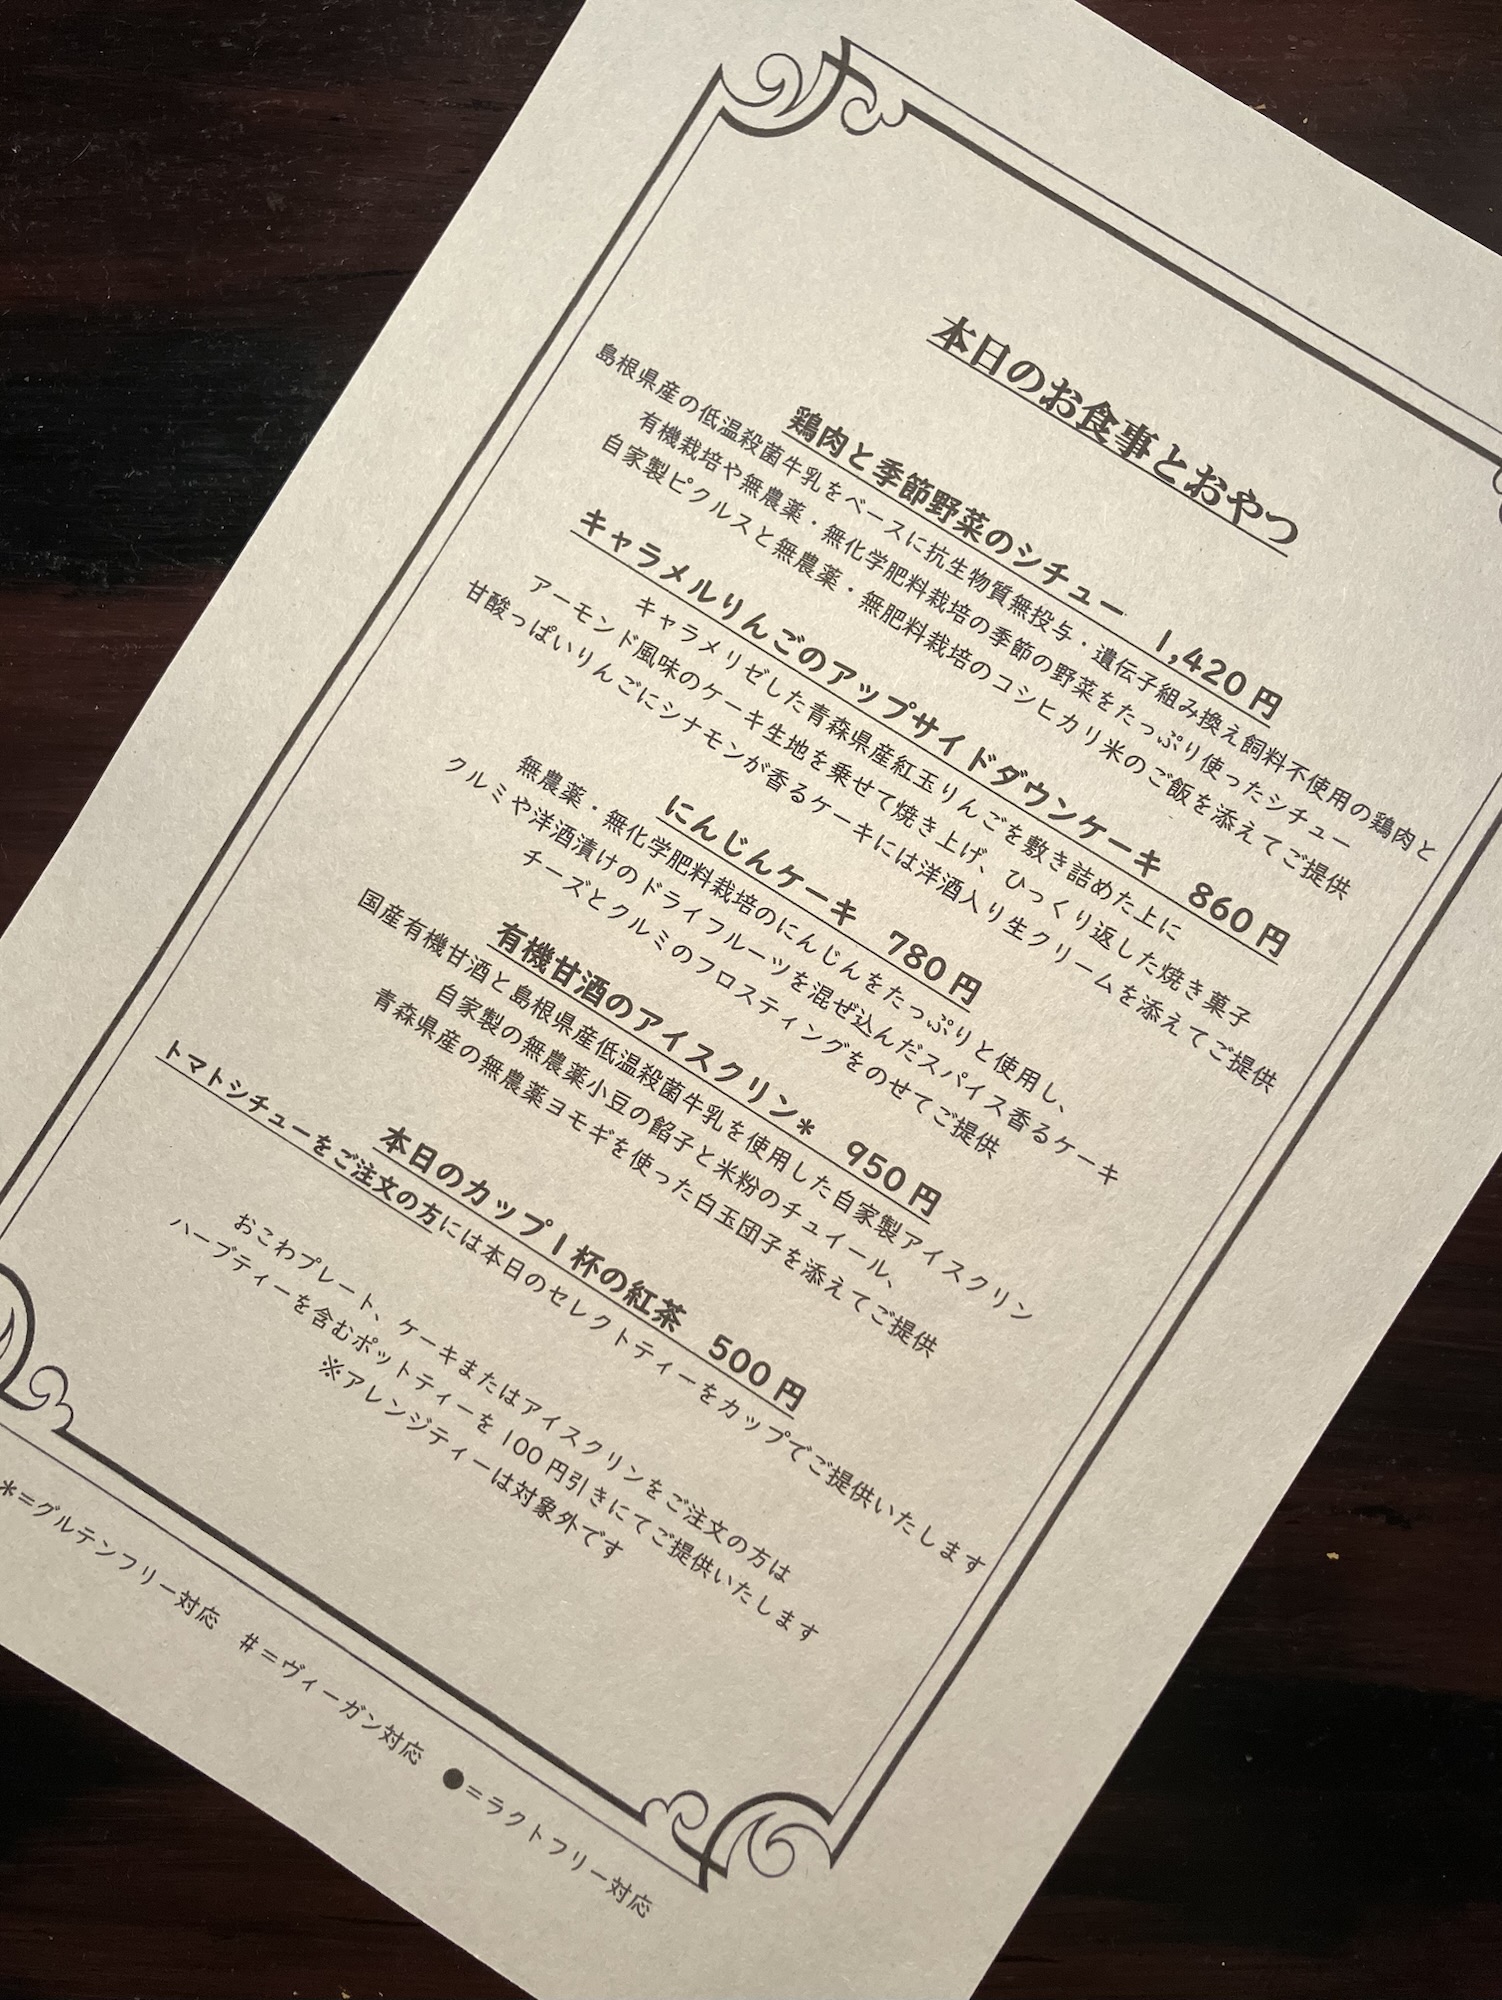 本日のお食事とおやつ
鶏肉と季節野菜のシチュー 1,420円
島根県産の低温殺菌牛乳をベースに抗生物質無投与・遺伝子組み換え飼料不使用の鶏肉と
有機栽培や無農薬・無化学肥料栽培の季節の野菜をたっぷり使ったシチュー
自家製ピクルスと無農薬・無肥料栽培のコシヒカリ米のご飯を添えてご提供
キャラメルりんごのアップサイドダウンケーキ 860円
キャラメリゼした青森県産紅玉りんごを敷き詰めた上に
アーモンド風味のケーキ生地を乗せて焼き上げ、ひっくり返した焼き菓子
甘酸っぱいりんごにシナモンが香るケーキには洋酒入り生クリームを添えてご提供
にんじんケーキ 780円
無農薬・無化学肥料栽培のにんじんをたっぷりと使用し、
クルミや洋酒漬けのドライフルーツを混ぜ込んだスパイス香るケーキ
チーズとクルミのフロスティングをのせてご提供
有機甘酒のアイスクリン* 950円
国産有機甘酒と島根県産低温殺菌牛乳を使用した自家製アイスクリン
自家製の無農薬小豆の餡子と米粉のチュイール、
青森県産の無農薬ヨモギを使った白玉団子を添えてご提供
本日のカップ1杯の紅茶 500円
トマトシチューをご注文の方には本日のセレクトティーをカップでご提供いたします
おこわプレート、ケーキまたはアイスクリンをご注文の方は
ハーブティーを含むポットティーを100円引きにてご提供いたします
※アレンジティーは対象外です
*=グルテンフリー対応 #=ヴィーガン対応 ●=ラクトフリー対応